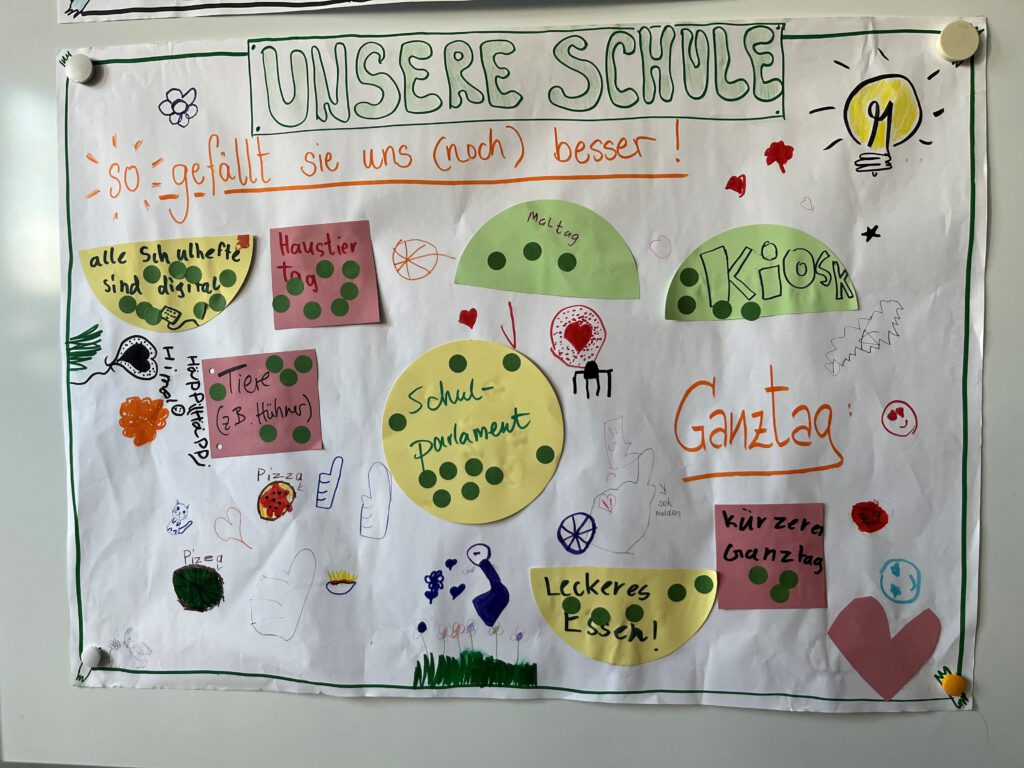 UNSERE SCHULE
so gefällt sie uns (noch) besser!
alle Schulhefte
sind digital
Haustier
tag
Maltag
KiOSK
Tiere
(z.B. Hühner)
Schul-
parlament
Ganztag:
Pizza
sich
melden
Kürzerer
Ganztag
Pizza
Leckeres
Essen!